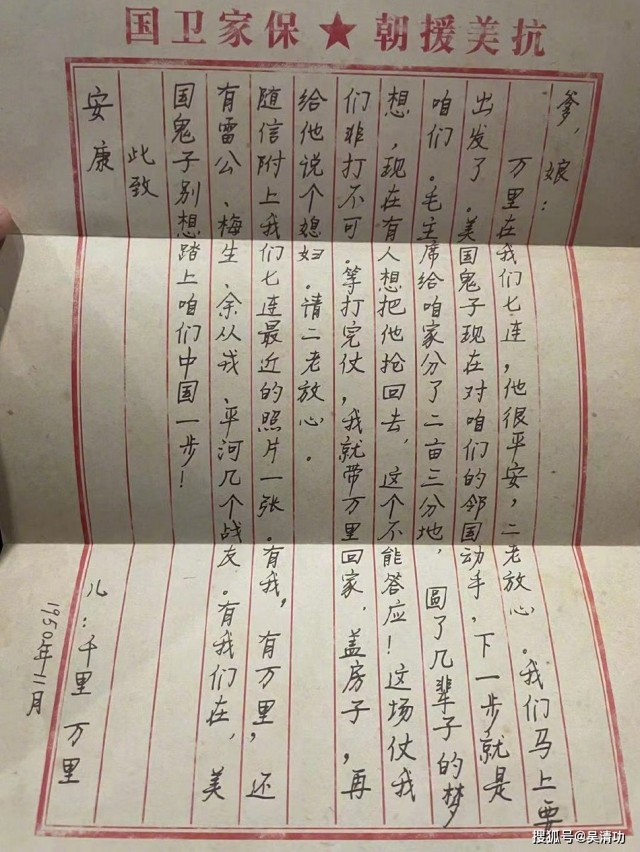 抗美援朝★保家卫国
爹，娘：
万里在我们七连，他很平安，二老放心。我们马上要
出发了。美国鬼子现在对咱们的邻国动手，下一步就是
咱们。毛主席给咱家分了二亩三分地，圆了几辈子的梦
想，现在有人想把他抢回去，这个不能答应！这场仗我
们非打不可。等打完仗，我就带万里回家，盖房子，再
给他说个媳妇。请二老放心。
随信附上我们七连最近的照片一张。有我，有万里，还
有雷公、梅生、余从戎、平河几个战友。有我们在，美
国鬼子别想踏上咱们中国一步！
此致
安康
儿：千里 万里
1950年11月
搜狐号@吴清功